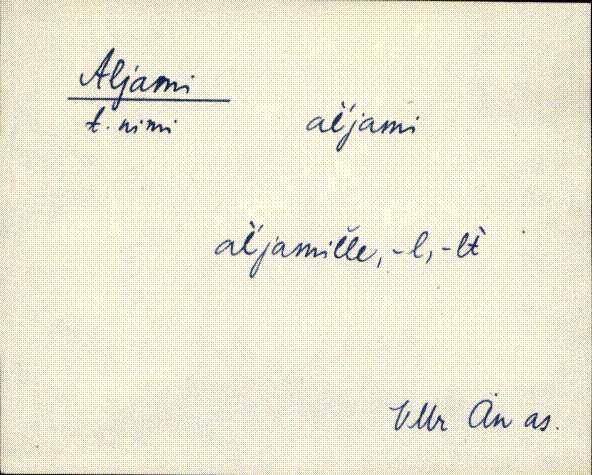 Aljami
t. nimi al̀jami
al̀jamil̆le, -l, -lt̀
VMr Än as.